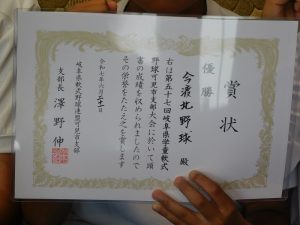 賞状
優勝
今渡北野球 殿
右は第五十七回岐阜県学童軟式
野球可児市支部大会に於いて頭
書の成績を収められましたので
その栄誉をたたえ之を賞します
令和七年六月二十一日
岐阜県軟式野球連盟可児市支部
支部長 澤野伸